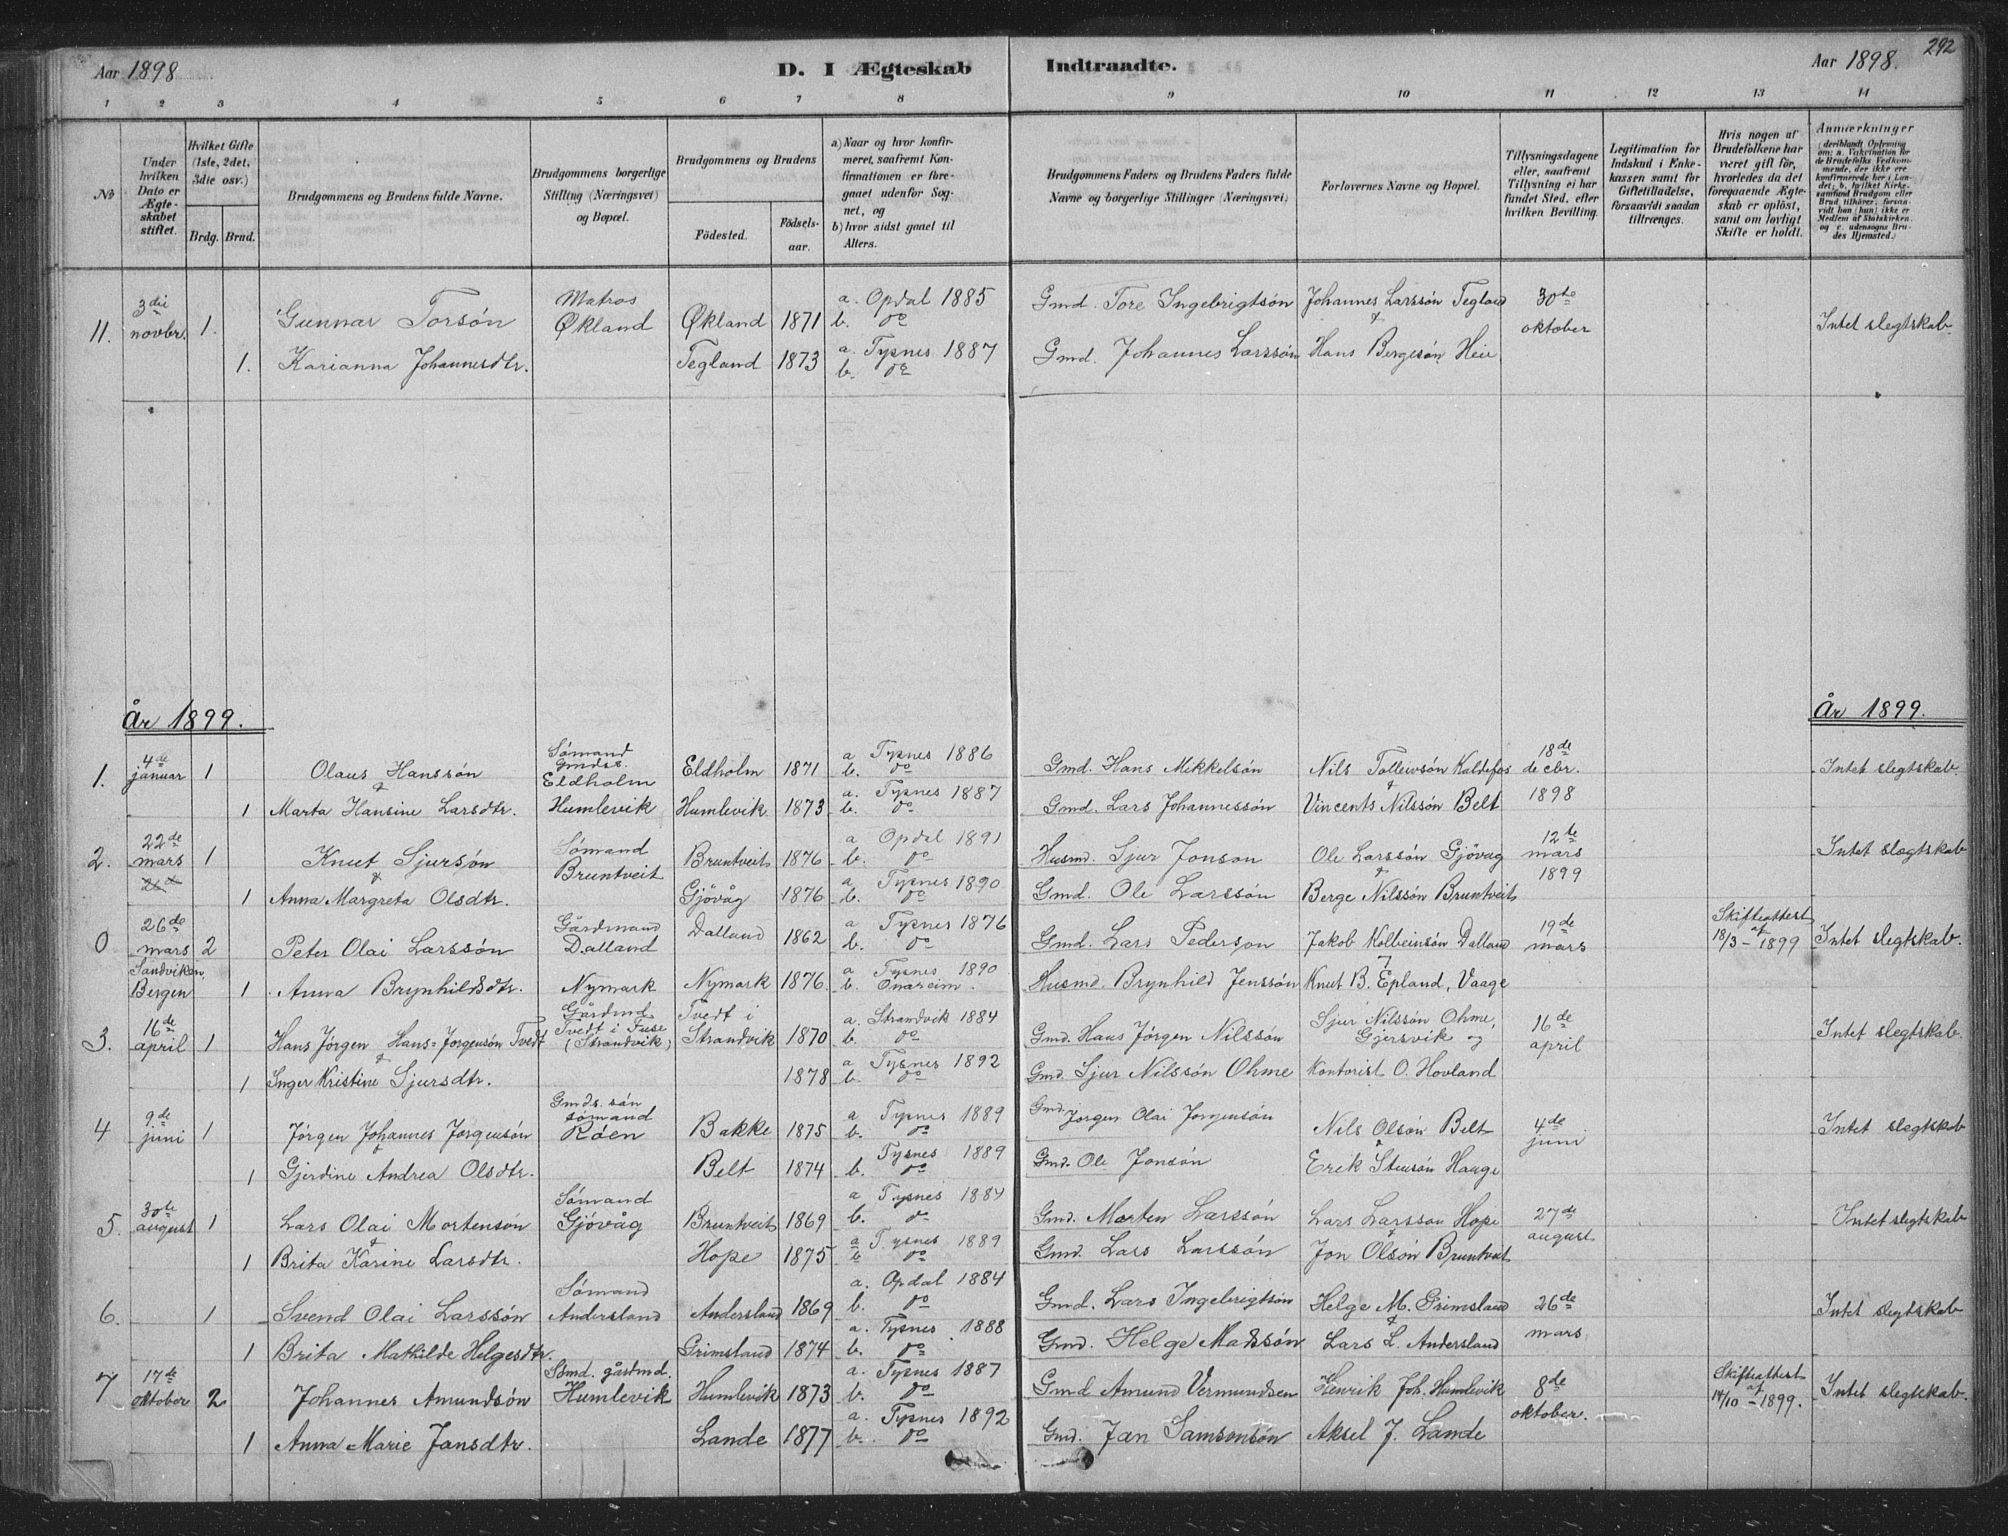 Aar 1898
D. I Ægteskab Indtraadte.
Aar 1898.
292
1 2 3 4 5 6 7 8 9 10 11 12 13 14
No
Under hvilken Dato er Ægteskabet stiftet.
Hvilket Gifte (1ste, 2det, 3die osv.)
Brdg. Brud.
Brudgommens og Brudens fulde Navne.
Brudgommens borgerlige Stilling (Næringsvei) og Bopæl.
Brudgommens og Brudens
Födested.
Födselsaar.
a) Naar og hvor konfirmeret, saafremt Konfirmationen er foregaaet udenfor Sognet, og
b) hvor sidst gaaet til Alters.
Brudgommens Faders og Brudens Faders fulde Navne og borgerlige Stillinger (Næringsvei)
Forlovernes Navne og Bopæl.
Tillysningsdagene eller, saafremt Tillysning ei har fundet Sted, efter hvilken Bevilling.
Legitimation for Indskud i Enkekassen samt for Giftetilladelse, forsaavidt saadan tiltrænges.
Hvis nogen af Brudefolkene har været gift för, hvorledes da det foregaaende Ægteskab er oplöst, samt om lovligt Skifte er holdt.
Anmærkninger
(deriblandt Oplysning om: a. Vakcination for de Brudefolks Vedkommende, der ikke ere konfirmerede her i Landet; b. hvilket Kirkesamfund Brudgom eller Brud tilhörer, forsaavidt han (hun) ikke er Medlem af Statskirken, og c. udensogns Brudes Hjemsted.)
11. 3die novbr. 1. Gunnar Torsón Matros Økland Økland 1871 a. Opdal 1885 b. do Gmd. Tore Ingebrigtsón Johannes Larssón Tegland & 30te oktober Intet slegtskab.
1. Karianna Johannesdtr. Tegland 1873 a. Tysnes 1887 b. do Gmd. Johannes Larssón Hans Bergesón Heie
År 1899. År 1899.
1. 4de januar 1 Olaus Hanssón & Sómand Gmds. Eldholm Eldholm 1871 a Tysnes 1886 b. do Gmd. Hans Mikkelsón Nils Tolleivsón Kaldefos & 18de decbr. 1898 Intet slegtskab
1 Marta Hansine Larsdtr. Humlevik Humlevik 1873 a. Tysnes 1887 b. do Gmd. Lars Johannessón Vincents Nilssón Belt
2. 22de mars 1 Knut Sjursón & Sómand Bruntveit Bruntveit 1876 a Opdal 1891 b. do Husmd. Sjur Jonson Ole Larssón Gjövåg & 12te mars 1899 Intet slægtskab
1 Anna Margreta Olsdtr. Gjövåg 1876 a Tysnes 1890 b. do Gmd. Ole Larssón Berge Nilssón Bruntveit
0 26de mars Sandviken, Bergen 2 Peter Olai Larssón Gårdmand Dalland Dalland 1862 a Tysnes 1876 b. do Gmd. Lars Pederson Jakob Kolbeinsón Dalland & 19de mars Skifteattest af 18/3 - 1899 Intet slegtskab.
1 Anna Brynhildsdtr. Nymark Nymark 1876 a Tysnes 1890 b. Onareim. Husmd. Brynhild Jenssón Knut B. Epland, Vaage
3. 16de april 1 Hans Jórgen Hans-Jorgensón Tvedt & Gårdmd Tvedt i Fuse (Strandvik) Tvedt i Strandvik 1870 a. Strandvik 1884 b. do Gmd. Hans Jórgen Nilssón Sjur Nilssón Ohme, Gjersvik og 16de april Intet slegtskab.
1 Inger Kristine Sjursdtr. 1878 a Tysnes 1892 b. do Gmd. Sjur Nilssón Ohme Kontorist O. Hovland
4 9de juni 1 Jórgen Johannes Jorgensón & Gmds. són sómand Róen Bakke 1875 a Tysnes 1889 b. do Gmd. Jorgen Olai Jorgensón Nils Olsón Belt & 4de juni Intet slegtskab
1 Gjerdine Andrea Olsdtr. Belt 1874 Tysnes 1889 b. do Gmd. Ole Jonsón Erik Stensón Hauge
5. 30te august 1 Lars Olai Mortensón & Sómand Gjóvåg Bruntveit 1869 a Tysnes 1884 b. do Gmd. Morten Larssón Lars Larsson Hope & 27de august Intet slegtskab
1 Brita Karine Larsdtr. Hope 1875 a Tysnes 1889 b do Gmd. Lars Larssón Jon Olsón Bruntveit
6. 1 Svend Olai Larssón Sómand Andersland Andersland 1869 a. Opdal 1884 b. do Gmd. Lars Ingebrigtsón Helge M. Grimsland & 26de mars Intet slegtskab
1 Brita Mathilde Helgesdtr. Grimsland 1874 a. Tysnes 1888 b. do Gmd. Helge Madssón Lars L. Andersland
7 17de oktober 2 Johannes Amundsón gårdmd. Humlevik Humlevik 1873 a. Tysnes 1887 b. do Gmd Amund Vermundsen Henrik Joh. Humlevik 8de oktober. Skifteattest af 14/10 - 1899. Intet slegtskab
1 Anna Marie Jansdtr. Lande 1877 a. Tysnes 1892 b. do Gmd. Jan Samsonsón Aksel J. Lande